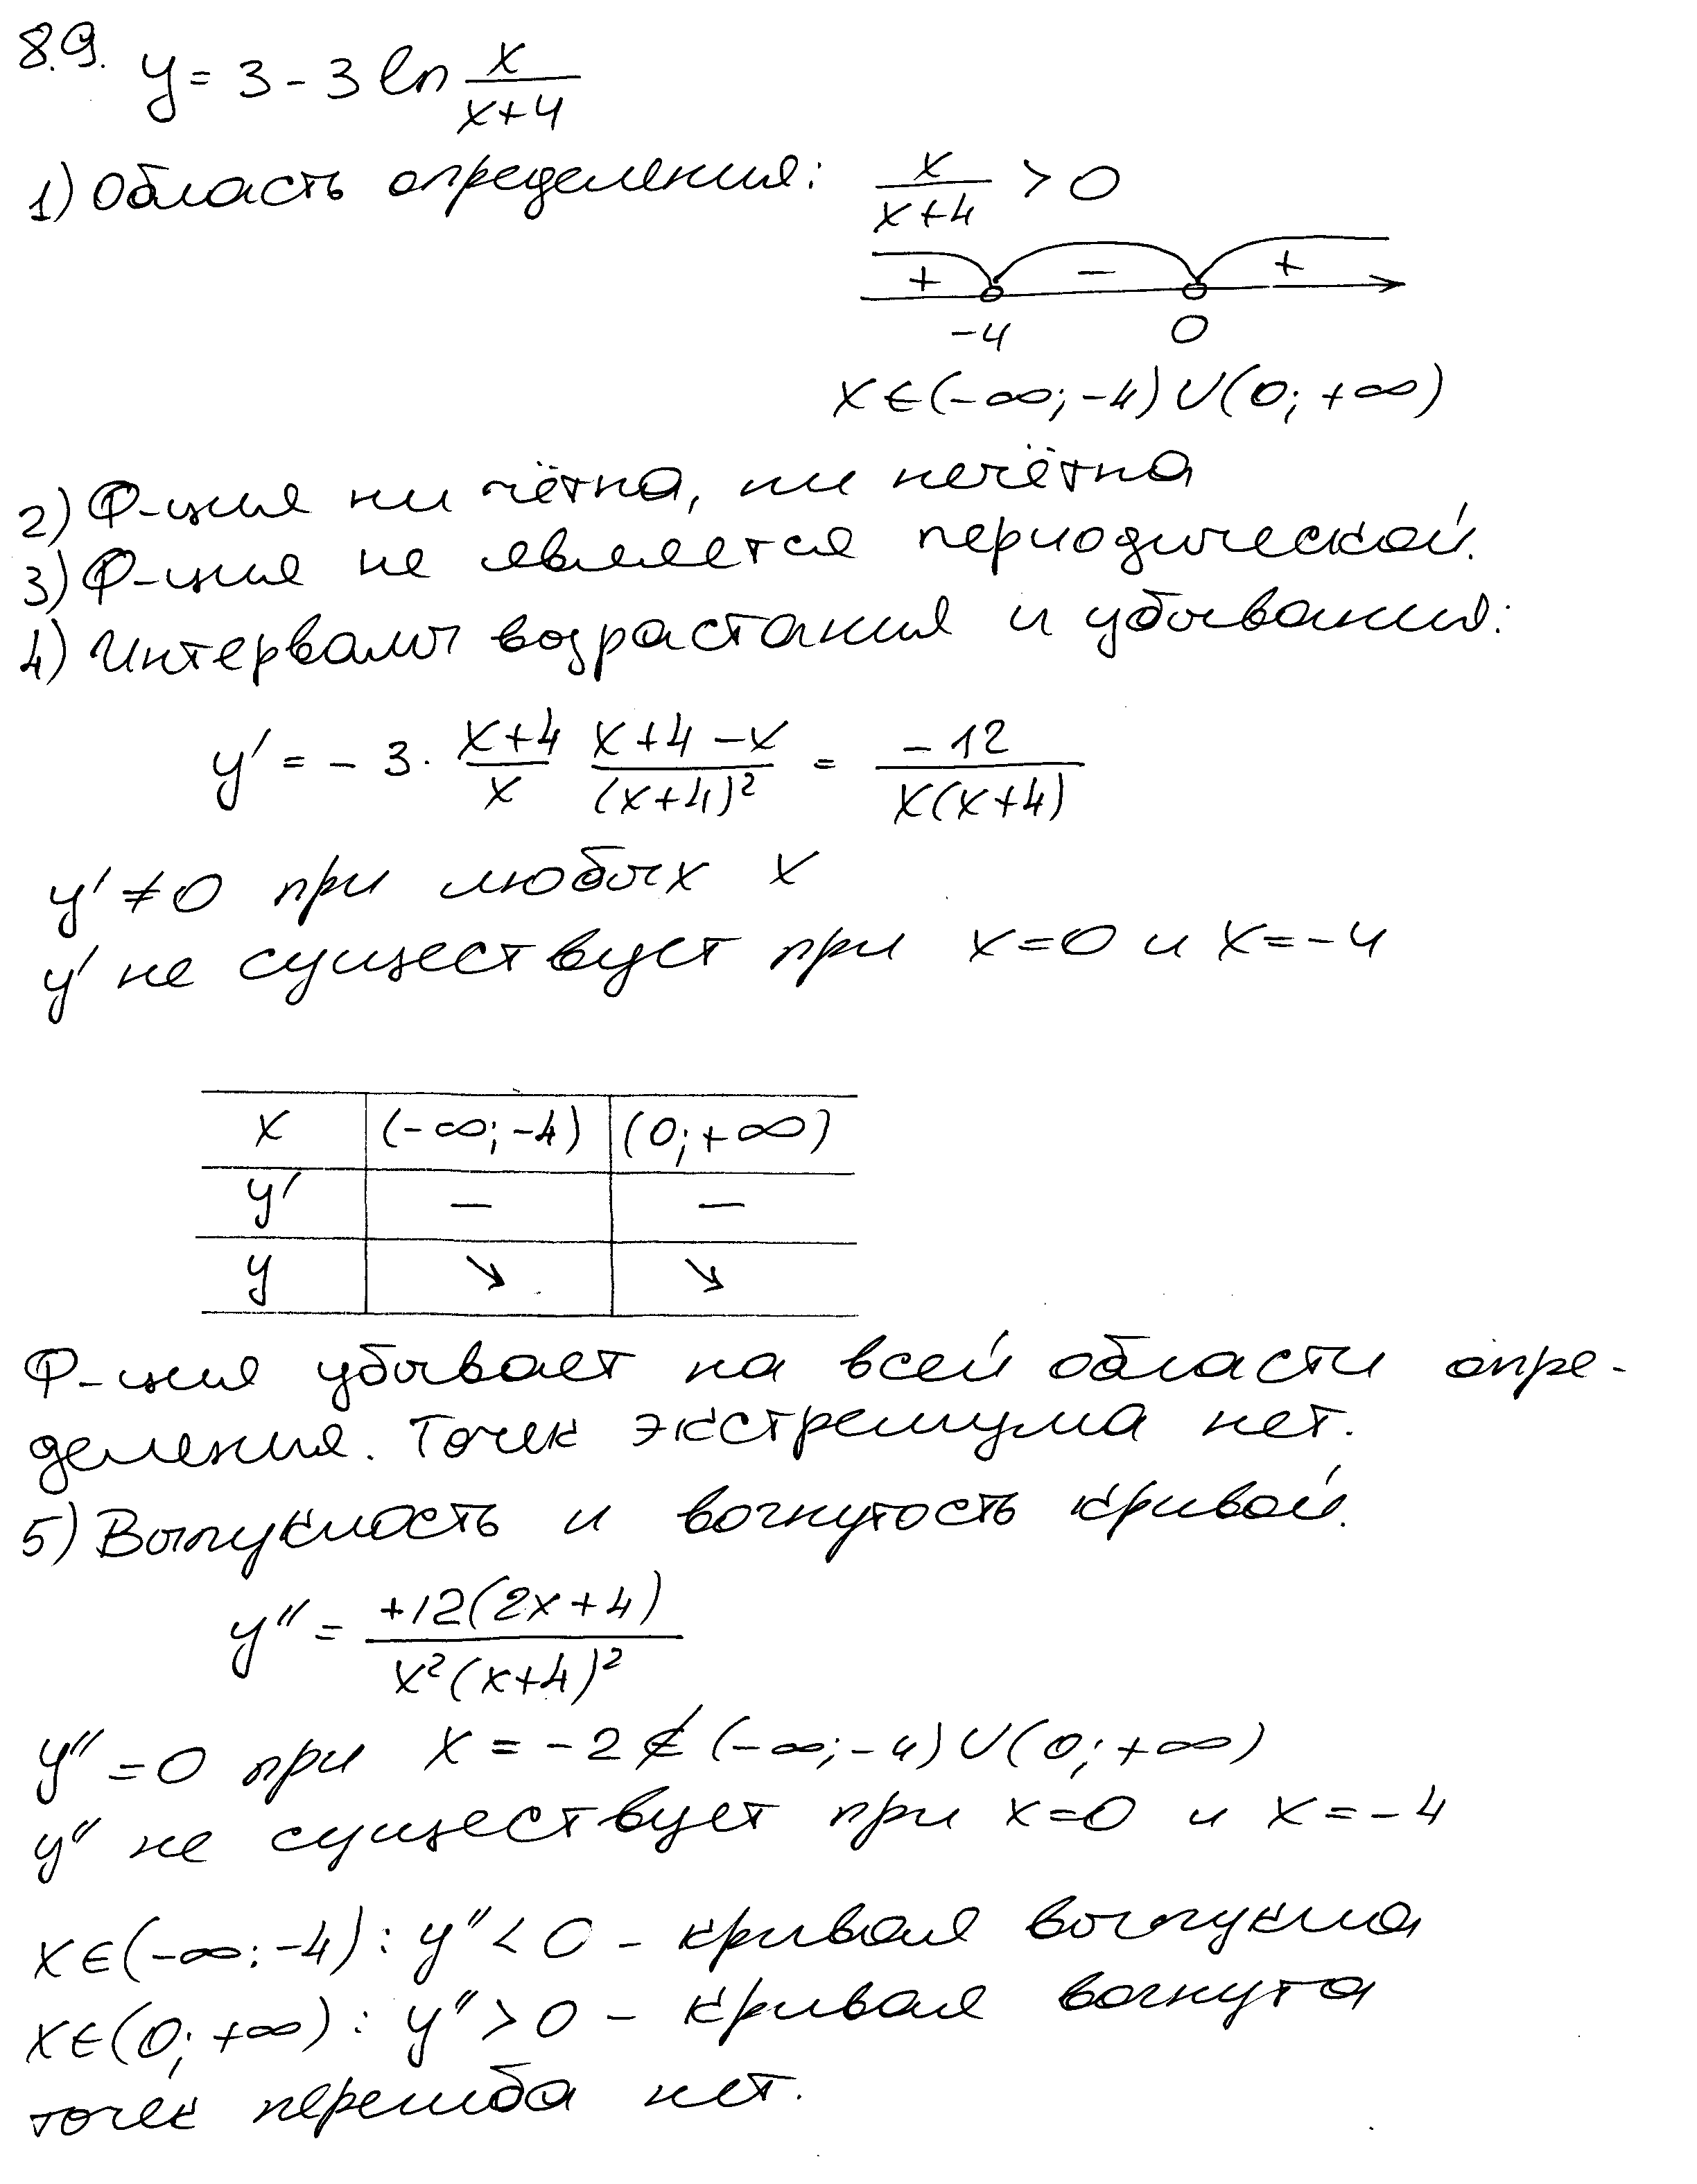 8.9. y = 3 - 3 ln x/(x+4)
1) Область определения: x/(x+4) > 0
+ - +
-4 0
x∈(-∞;-4)∪(0;+∞)
2) Ф-ция ни чётна, ни нечётна
3) Ф-ция не является периодической.
4) Интервалы возрастания и убывания:
y' = - 3 · (x+4)/x (x+4-x)/(x+4)² = -12/(x(x+4))
y' ≠ 0 при любых x
y' не существует при x=0 и x=-4
x (-∞;-4) (0;+∞)
y' - -
y ↘ ↘
Ф-ция убывает на всей области опре-
деления. Точек экстремума нет.
5) Выпуклость и вогнутость кривой.
y'' = +12(2x+4)/(x²(x+4)²)
y'' = 0 при x = -2 ∉ (-∞;-4)∪(0;+∞)
y'' не существует при x=0 и x=-4
x∈(-∞;-4): y''<0 - кривая выпукла
x∈(0;+∞): y''>0 - кривая вогнута
точек перегиба нет.